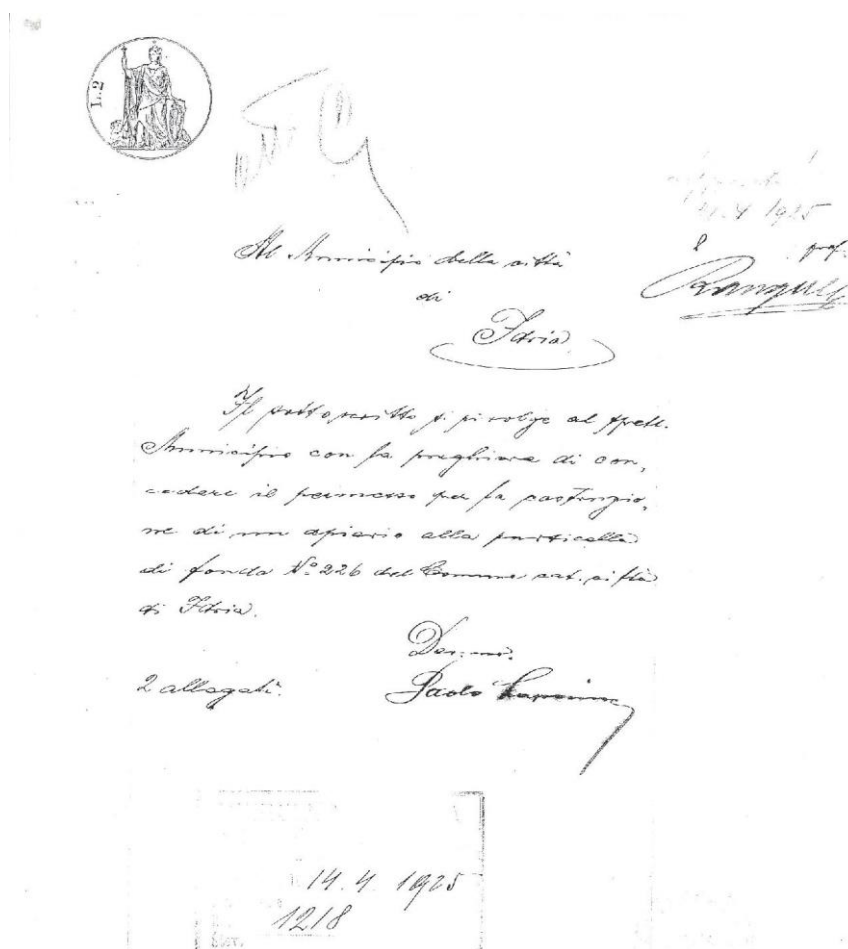 L. 2
4. 4 1925
prof.
Al Municipio della città
di
Idria.
Il sottoscritto si rivolge al spett.
Municipio con la preghiera di con,
cedere il permesso per la costruzio,
ne di un apiario alla particella
di fondo Nº 226 del Comune cat. città
di Idria.
Dev:mo.
2 allegati.
Paolo
14. 4. 1925
1218